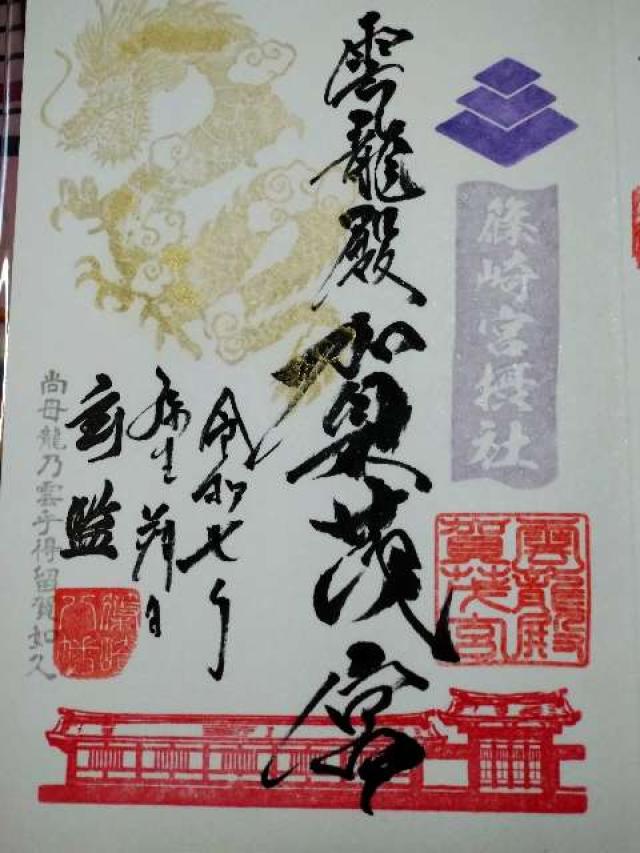 篠崎宮摂社
雲龍殿
賀茂宮
雲龍殿
加茂宮
令和七年
弥生朔日
尚毋龍乃雲乎得留賀如久